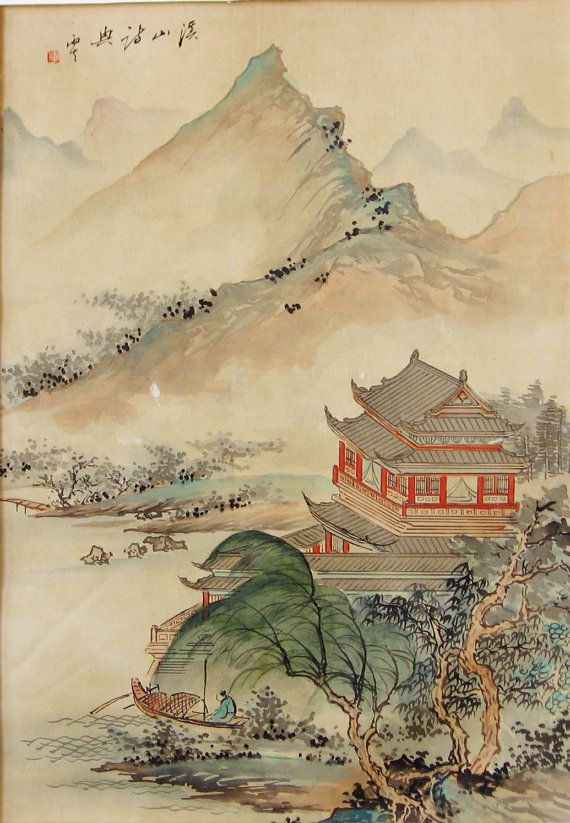 溪山詩興